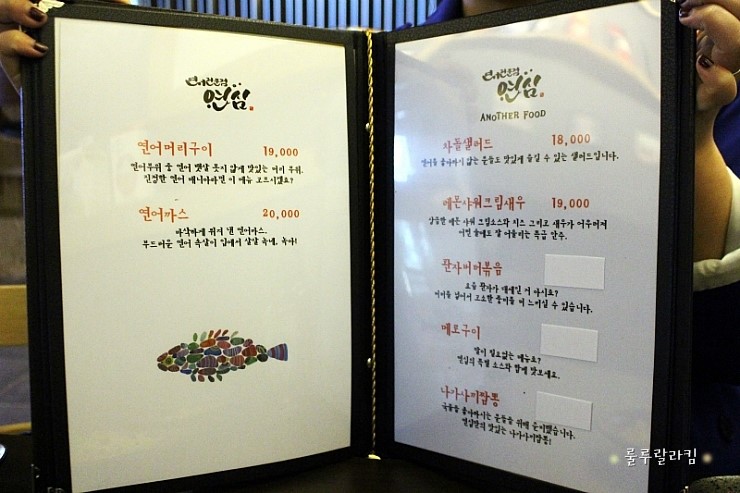 연어전문점
연심
연어머리구이 19,000
연어부위 중 연어 뱃살 못지 않게 맛있는 머리 부위.
진정한 연어 매니아라면 이 메뉴 모르시겠죠?
연어까스 20,000
바삭하게 튀겨 낸 연어까스.
부드러운 연어 속살이 입에서 살살 녹네, 녹아!
연어전문점
연심
ANOTHER FOOD
차돌샐러드 18,000
연어를 좋아하지 않는 분들도 맛있게 즐길 수 있는 샐러드입니다.
레몬사워크림새우 19,000
상큼한 레몬 사워 크림소스와 치즈 그리고 새우가 어우러져
어떤 술에도 잘 어울리는 특급 안주.
관자버터볶음
요즘 관자가 대세인 거 아시죠?
버터를 넣어서 고소한 풍미를 더 느끼실 수 있습니다.
메로구이
말이 필요없는 메뉴죠?
연심의 특별 소스와 함께 맛보세요.
나가사끼짬뽕
국물을 좋아하시는 분들을 위해 준비했습니다.
연심만의 맛있는 나가사끼짬뽕!
룰루랄라킴